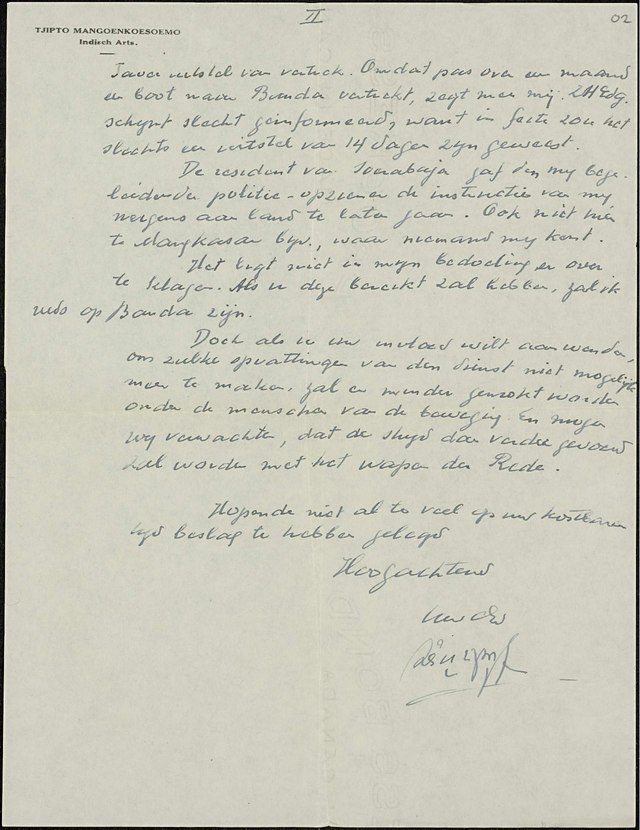 II
02
TJIPTO MANGOENKOESOEMO
Indisch Arts.
Java uitstel van vertrek. Omdat pas over een maand
een boot naar Banda vertrekt, zegt men mij. ZHEdg.
schijnt slecht geinformeerd, want in facto zou het
slechts een uitstel van 14 dagen zijn geweest.
De resident van Soerabaja gaf den mij bege-
leidenden politie-opziener de instructie van mij
nergens aan land te laten gaan. Ook niet hier
te Mangkasar bijv., waar niemand mij kent.
Het ligt niet in mijn bedoeling er over
te klagen. Als u deze bereikt zal hebben, zal ik
reeds op Banda zijn.
Doch als u uw invloed wilt aanwenden,
om zulke opvattingen van den dienst niet mogelijk
meer te maken, zal er minder gewrokt worden
onder de menschen van de beweging. En mogen
wij verwachten, dat de strijd dan verder gevoerd
zal worden met het wapen der Rede.
Hopende niet al te veel op uw kostbaren
tijd beslag te hebben gelegd
Hoogachtend
Uw dw